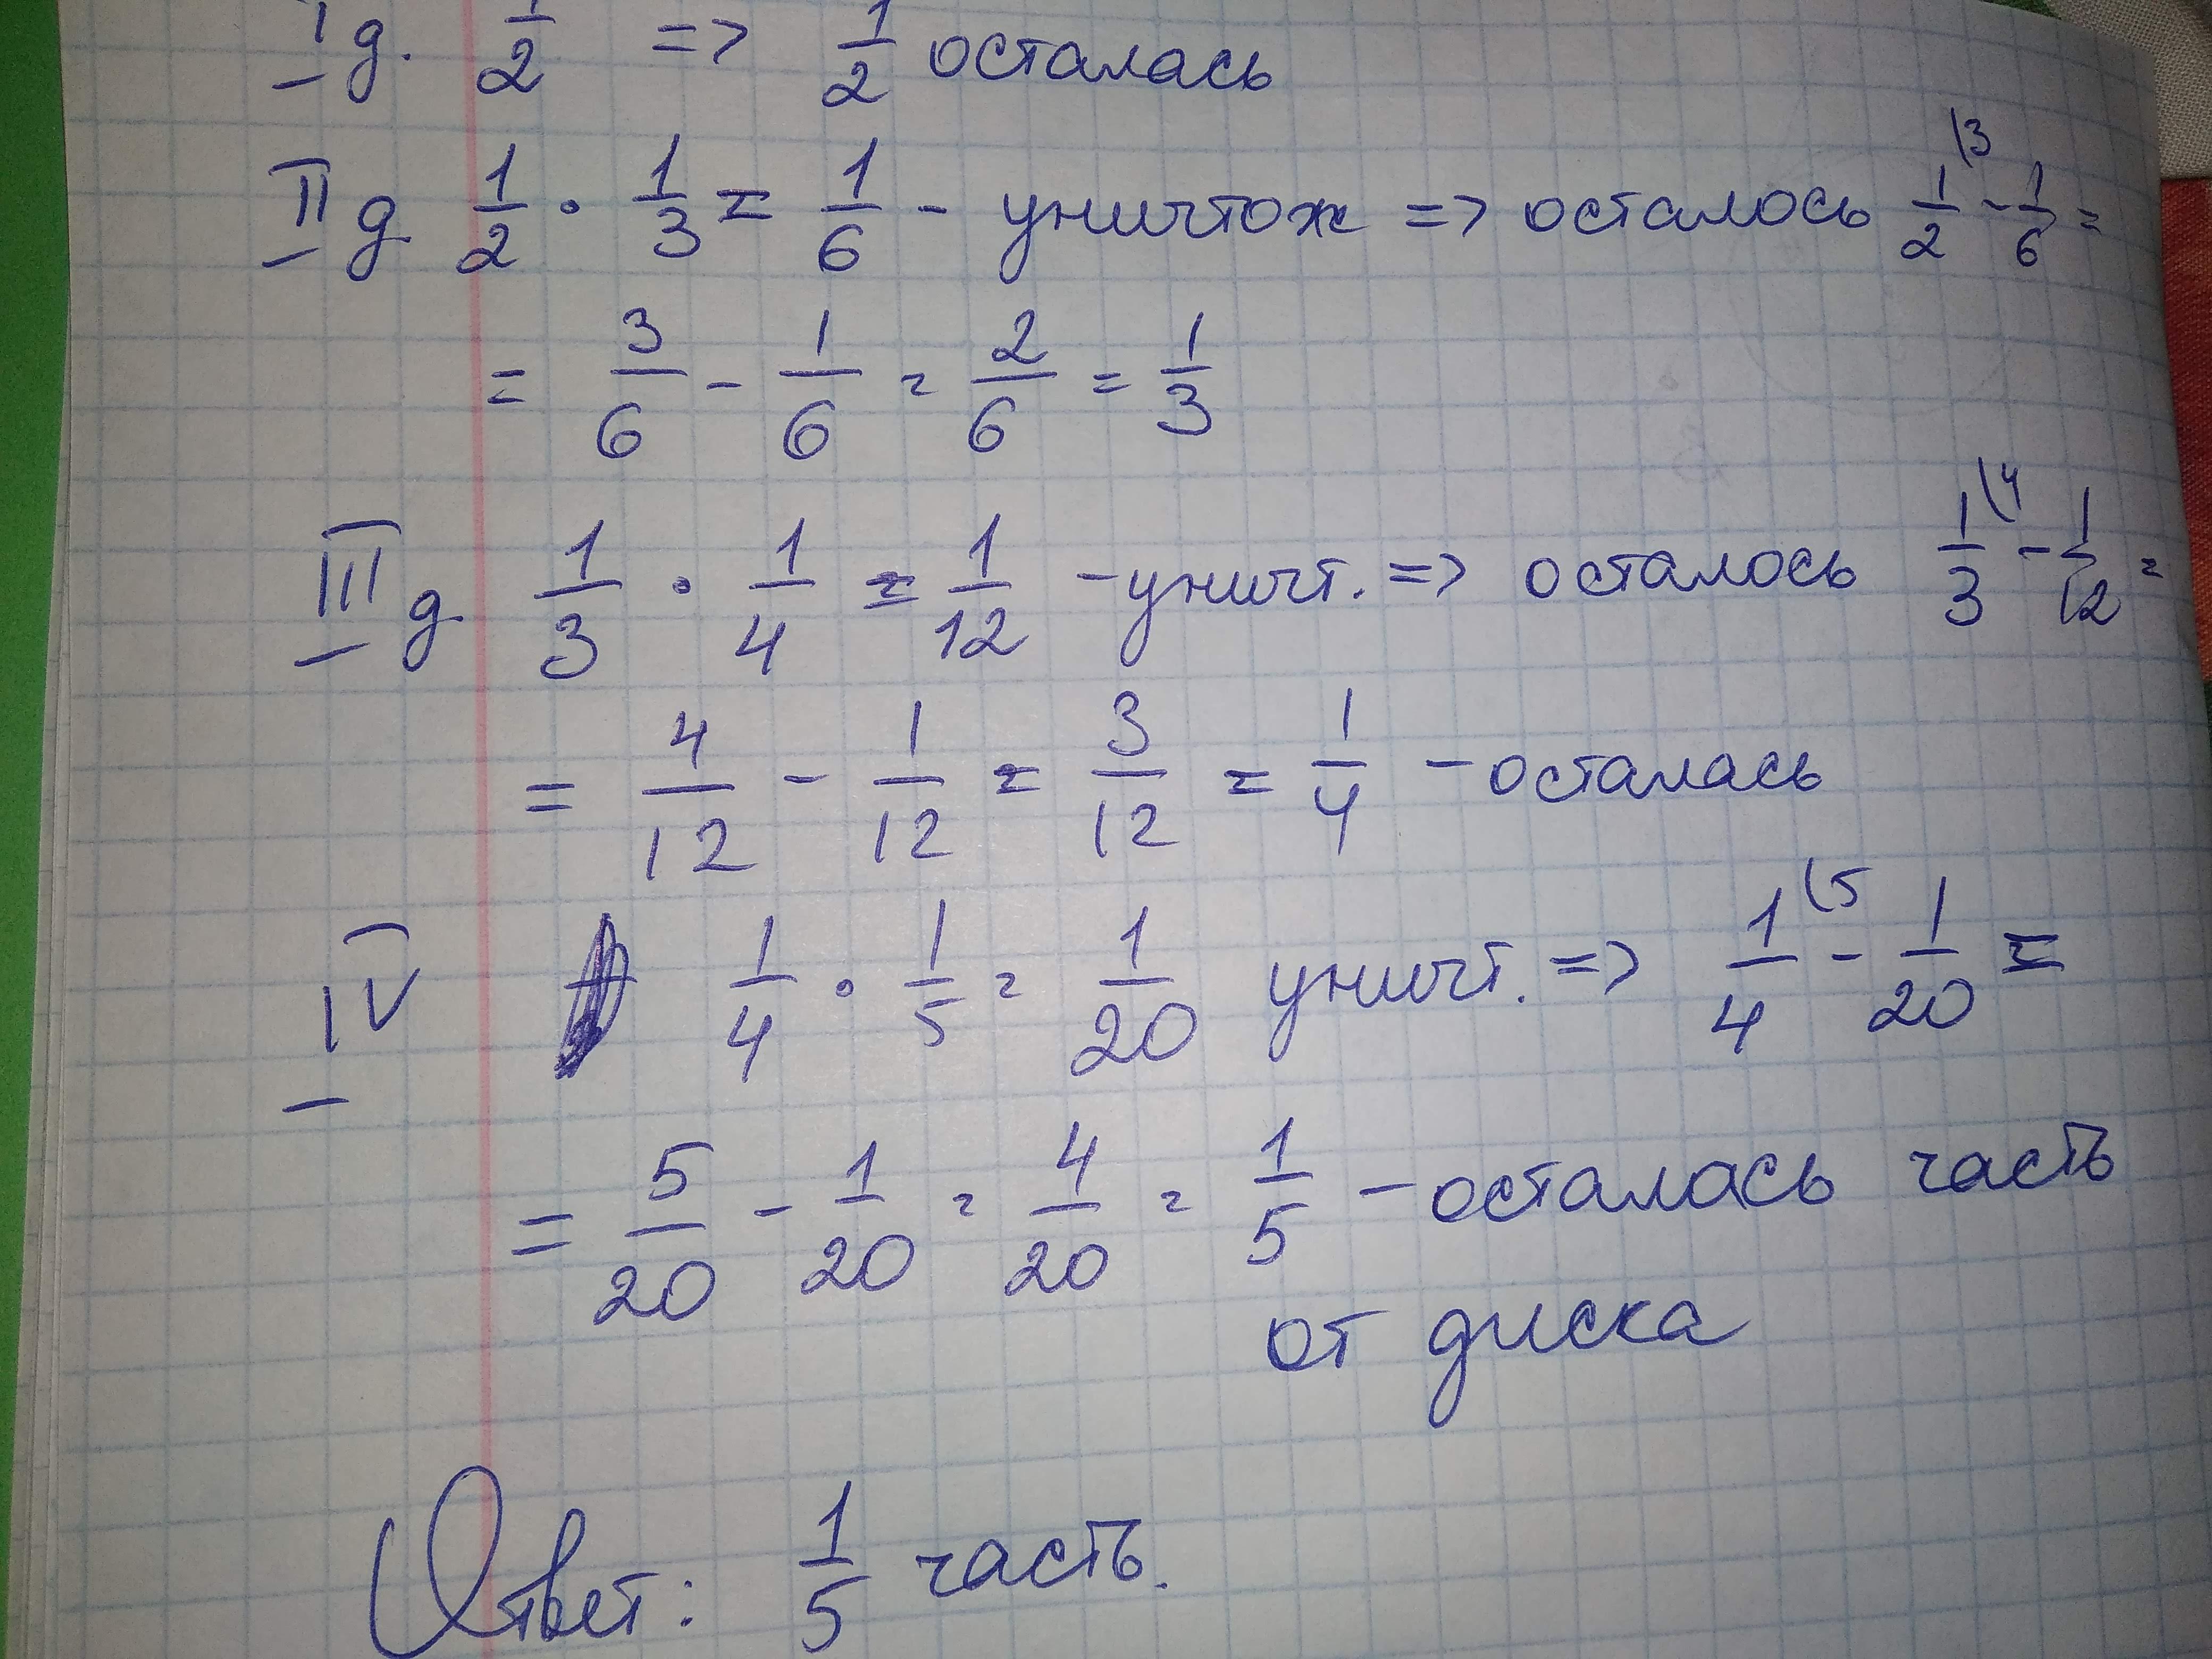 I д. 1/2 => 1/2 осталась
II д 1/2 · 1/3 = 1/6 - уничтож => осталось 1/2 (3 - 1/6 =
= 3/6 - 1/6 = 2/6 = 1/3
III д 1/3 · 1/4 = 1/12 - уничт. => осталось 1/3 (4 - 1/12 =
= 4/12 - 1/12 = 3/12 = 1/4 - осталась
IV 1/4 · 1/5 = 1/20 уничт. => 1/4 (5 - 1/20 =
= 5/20 - 1/20 = 4/20 = 1/5 - осталась часть
от диска
Ответ: 1/5 часть.